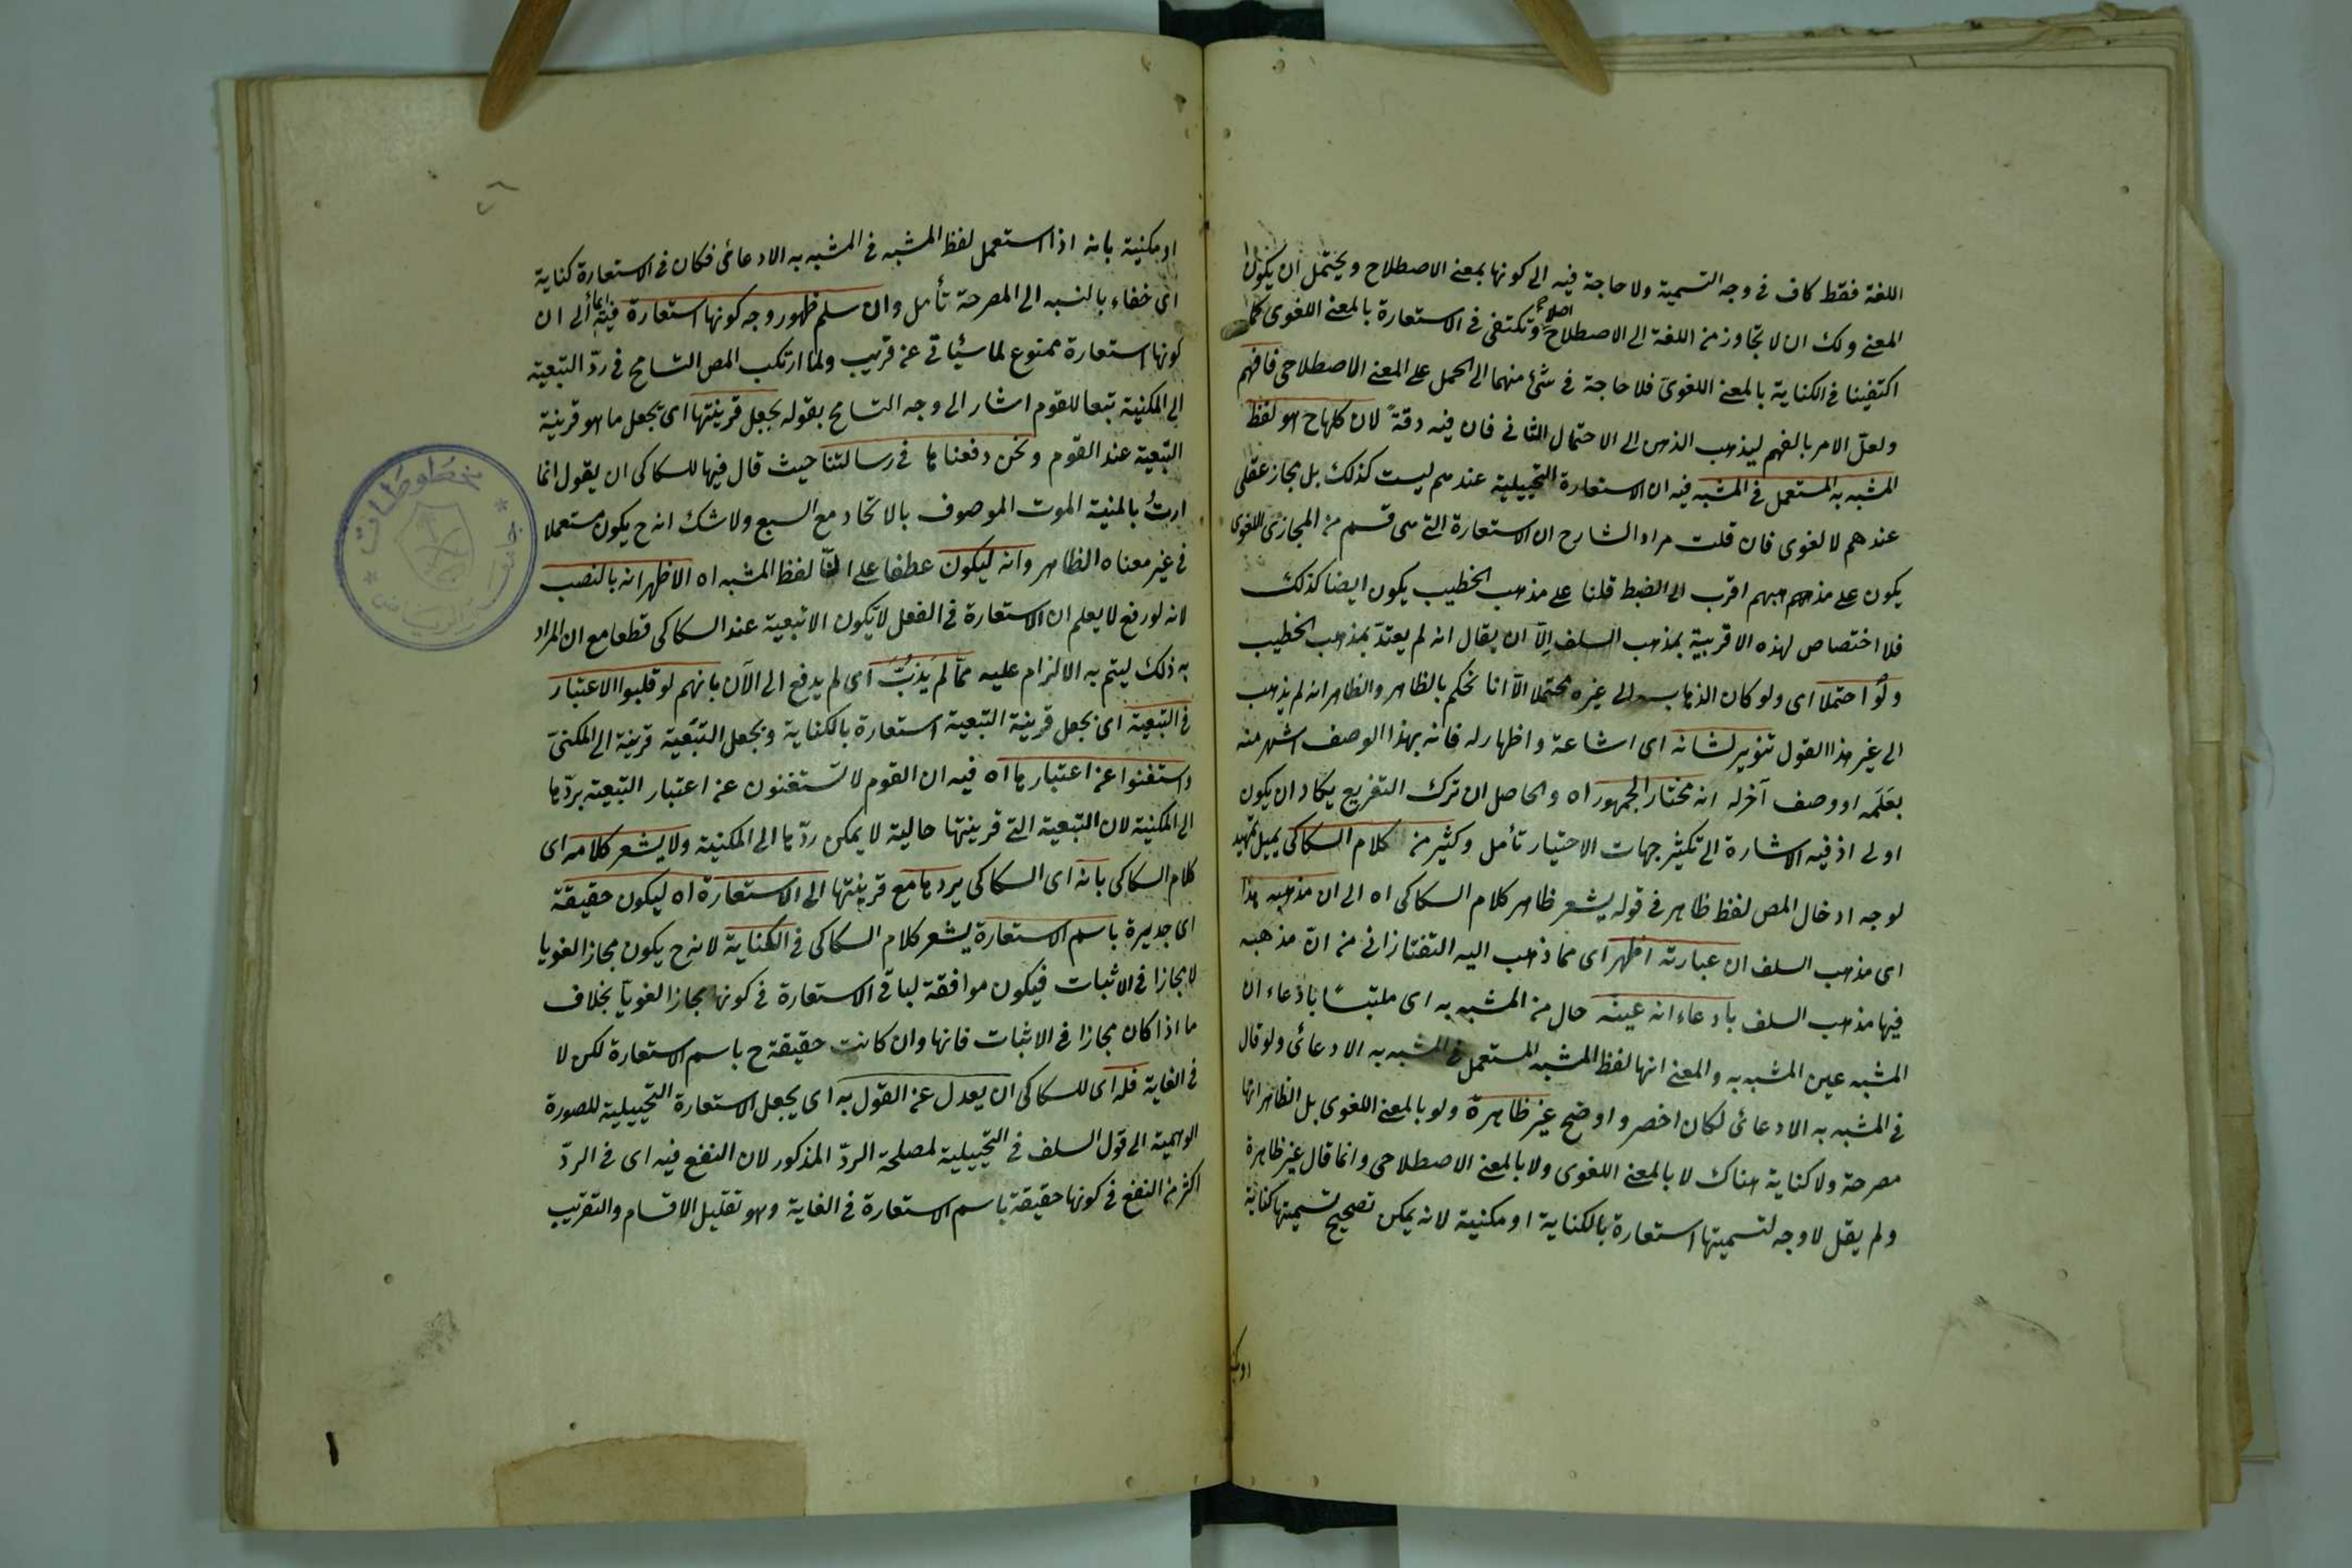 اللغة فقط كاف في وجه التسمية ولا حاجة فيه الى كونها بمعنى الاصطلاح ويحتمل ان يكون
المعنى ولك ان لا تجاوز من اللغة الى الاصطلاح اصلا وتكتفى في الاستعارة بالمعنى اللغوى كما
اكتفينا في الكناية بالمعنى اللغوى فلا حاجة في شئ منهما الى الحمل على المعنى الاصطلاحى فافهم
ولعل الامر بالفهم ليذهب الذهن الى الاحتمال الثانى فان فيه دقة لان كلها ح هو لفظ
المشبه به المستعمل في المشبه فيه ان الاستعارة التخييلية عندهم ليست كذلك بل مجاز عقلى
عندهم لا لغوى فان قلت مراد الشارح ان الاستعارة التى هى قسم من المجاز اللغوى
يكون على مذهبهم اقرب الى الضبط قلنا على مذهب الخطيب يكون ايضا كذلك
فلا اختصاص لهذه الاقربية بمذهب السلف الّا ان يقال انه لم يعتدّ بمذهب الخطيب
ولو احتملا اى ولو كان الذهاب الى غيره محتملا الّا انا نحكم بالظاهر والظاهر انه لم يذهب
الى غير هذا القول تنوير لشانه اى اشاعة واظهار له فانه بهذا الوصف اشهر منه
بعَلَمه او وصف آخر له انه مختار الجمهور اه والحاصل ان ترك التفريع يكاد ان يكون
اولى اذ فيه الاشارة الى تكثير جهات الاختيار تأمل وكثير من كلام السكاكى يميل تمهيد
لوجه ادخال المص لفظ ظاهر في قوله يشعر ظاهر كلام السكاكى اه الى ان مذهبه هذا
اى مذهب السلف ان عبارته اظهر اى مما ذهب اليه التفتازانى من انّ مذهبه
فيها مذهب السلف بادعاء انه عينه حال من المشبه به اى ملتبسًا بادعاء ان
المشبه عين المشبه به والمعنى انها لفظ المشبه المستعمل في المشبه به الادعائى ولو قال
في المشبه به الادعائى لكان اخصر واوضح غير ظاهرة ولو بالمعنى اللغوى بل الظاهر انها
مصرحة ولا كناية هناك لا بالمعنى اللغوى ولا بالمعنى الاصطلاحى وانما قال غير ظاهرة
ولم يقل لا وجه لتسميتها استعارة بالكناية او مكنية لانه يمكن تصحيح تسميتها كناية
او مكنية بانه اذا استعمل لفظ المشبه في المشبه به الادعائى فكان في الاستعارة كناية
اى خفاء بالنسبه الى المصرحة تأمل وان سلم ظهور وجه كونها استعارة فيه ايماء الى ان
كونها استعارة ممنوع لما سيأتى عن قريب ولما ارتكب المص التسامح في ردّ التبعية
الى المكنية تبعا للقوم اشار الى وجه التسامح بقوله بجعل قرينتها اى بجعل ما هو قرينة
التبعية عند القوم ونحن دفعناها في رسالتنا حيث قال فيها للسكاكى ان يقول انما
اردتُ بالمنية الموت الموصوف بالاتحاد مع السبع ولا شك انه ح يكون مستعملا
في غير معناه الظاهر وانه ليكون عطفا على انّ لفظ المشبه اه الاظهر انه بالنصب
لانه لو رفع لا يعلم ان الاستعارة في الفعل لا تكون الا تبعية عند السكاكى قطعا مع ان المراد
به ذلك ليتم به الالزام عليه ممّا لم يَذُبّ اى لم يدفع الى الآن بانهم لو قلبوا الاعتبار
في التبعية اى بجعل قرينة التبعية استعارة بالكناية وبجعل التبعية قرينة الى المكنىّ
واستغنوا عن اعتبارها اه فيه ان القوم لا تستغنون عن اعتبار التبعية بردّها
الى المكنية لان التبعية التى قرينتها حالية لا يمكن ردّها الى المكنية ولا يشعر كلامه اى
كلام السكاكى بانه اى السكاكى يردها مع قرينتها الى الاستعارة اه ليكون حقيقة
اى جديرة باسم الاستعارة يشعر كلام السكاكى في الكناية لانه ح يكون مجازا لغويا
لا مجازا في الاثبات فيكون موافقة لباقى الاستعارة في كونها مجازا لغويا بخلاف
ما اذا كان مجازا في الاثبات فانها وان كانت حقيقة ح باسم الاستعارة لكن لا
في الغاية فله اى للسكاكى ان يعدل عن القول به اى يجعل الاستعارة التخييلية للصورة
الوهمية الى قول السلف في التخييلية لمصلحة الردّ المذكور لان النفع فيه اى في الردّ
اكثر من النفع في كونها حقيقة باسم الاستعارة في الغاية وهو تقليل الاقسام والتقريب
مخطوطات